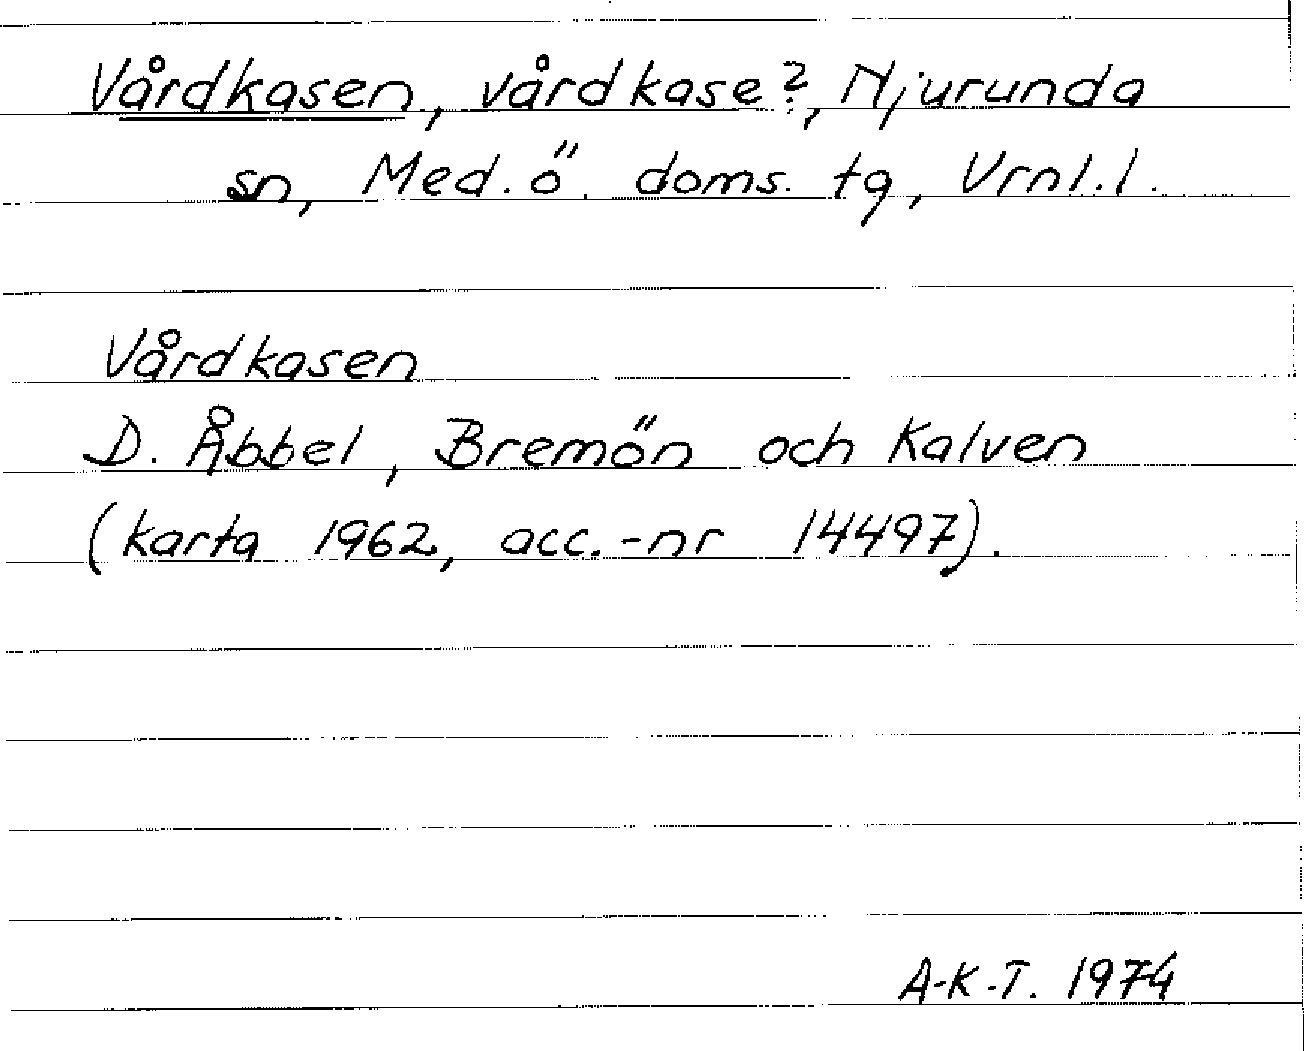 Vårdkasen, vårdkase?, Njurunda
sn, Med. ö. doms. tg, Vrnl. l.
Vårdkasen
D. Åbbel, Bremön och Kalven
(karta 1962, acc.-nr 14497).
A-K-T. 1974